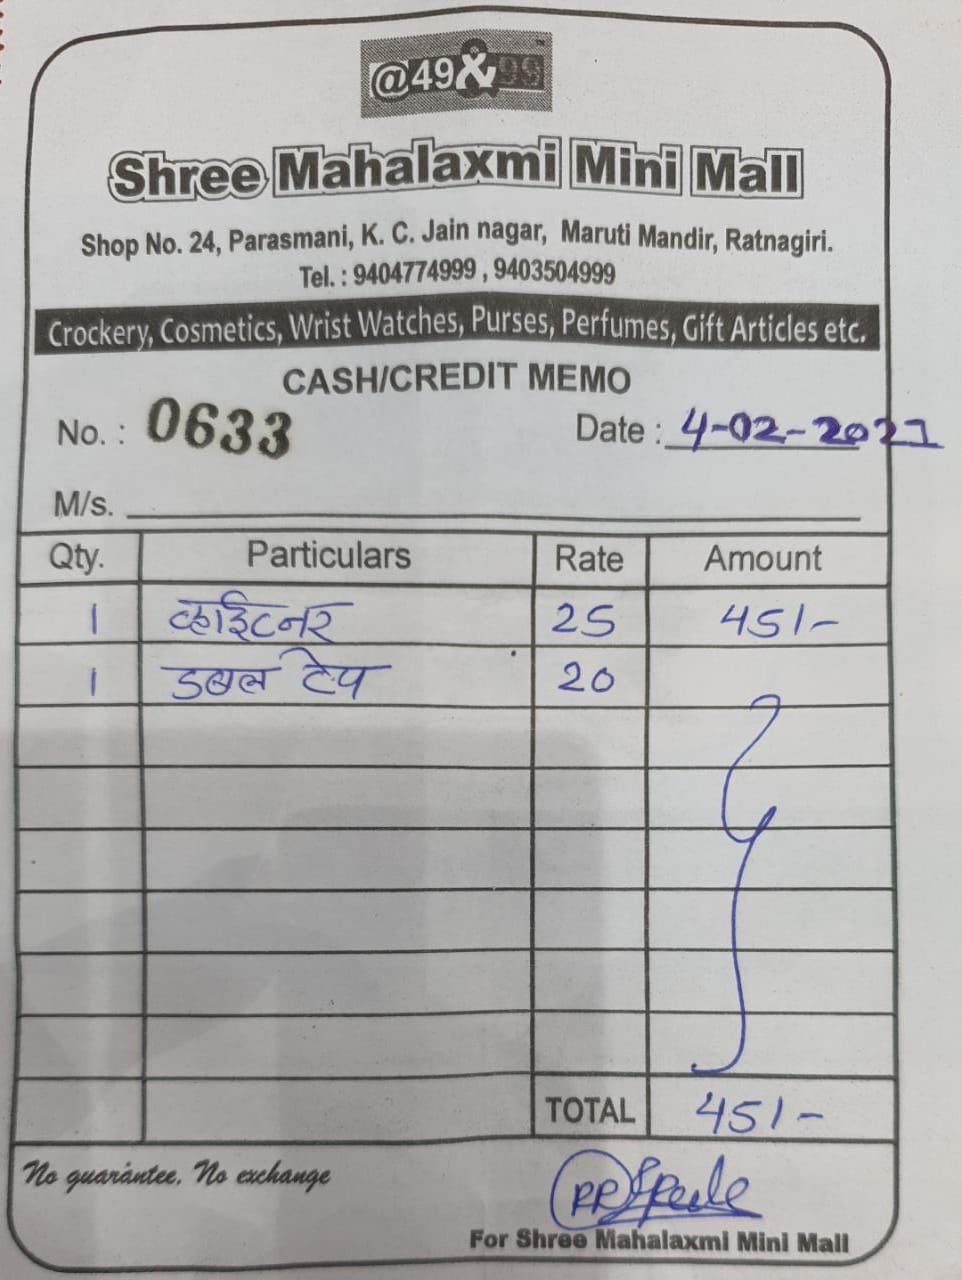 @49&99
Shree Mahalaxmi Mini Mall
Shop No. 24, Parasmani, K. C. Jain nagar, Maruti Mandir, Ratnagiri.
Tel. : 9404774999 , 9403504999
Crockery, Cosmetics, Wrist Watches, Purses, Perfumes, Gift Articles etc.
CASH/CREDIT MEMO
No. : 0633 Date : 4-02-2021
M/s.
Qty. Particulars Rate Amount
1 व्हाईटनर 25 45/-
1 डबल टेप 20
TOTAL 45/-
No guarantee, No exchange
For Shree Mahalaxmi Mini Mall